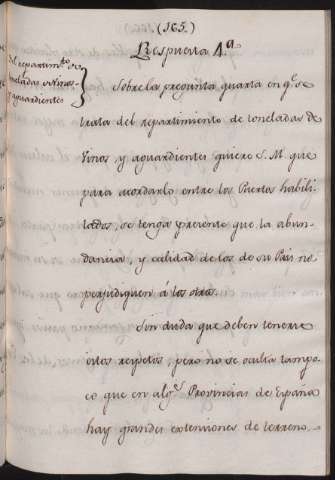 (165.)
Respuesta 4.ª
del repartim.to de
toneladas de vinos
y aguardientes
Sobre la pregunta quarta en q.e se
trata del repartimiento de toneladas de
Vinos y aguardientes quiere S. M. que
para acordarlo entre los Puertos habili-
tados, se tenga presente que la abun-
dancia, y calidad de los de su País no
perjudiquen á los otros.
Sin duda que deben tenerse
estos respetos, pero no se oculta tampo-
co que en alg.s Provincias de España
hay grandes extensiones de terreno,